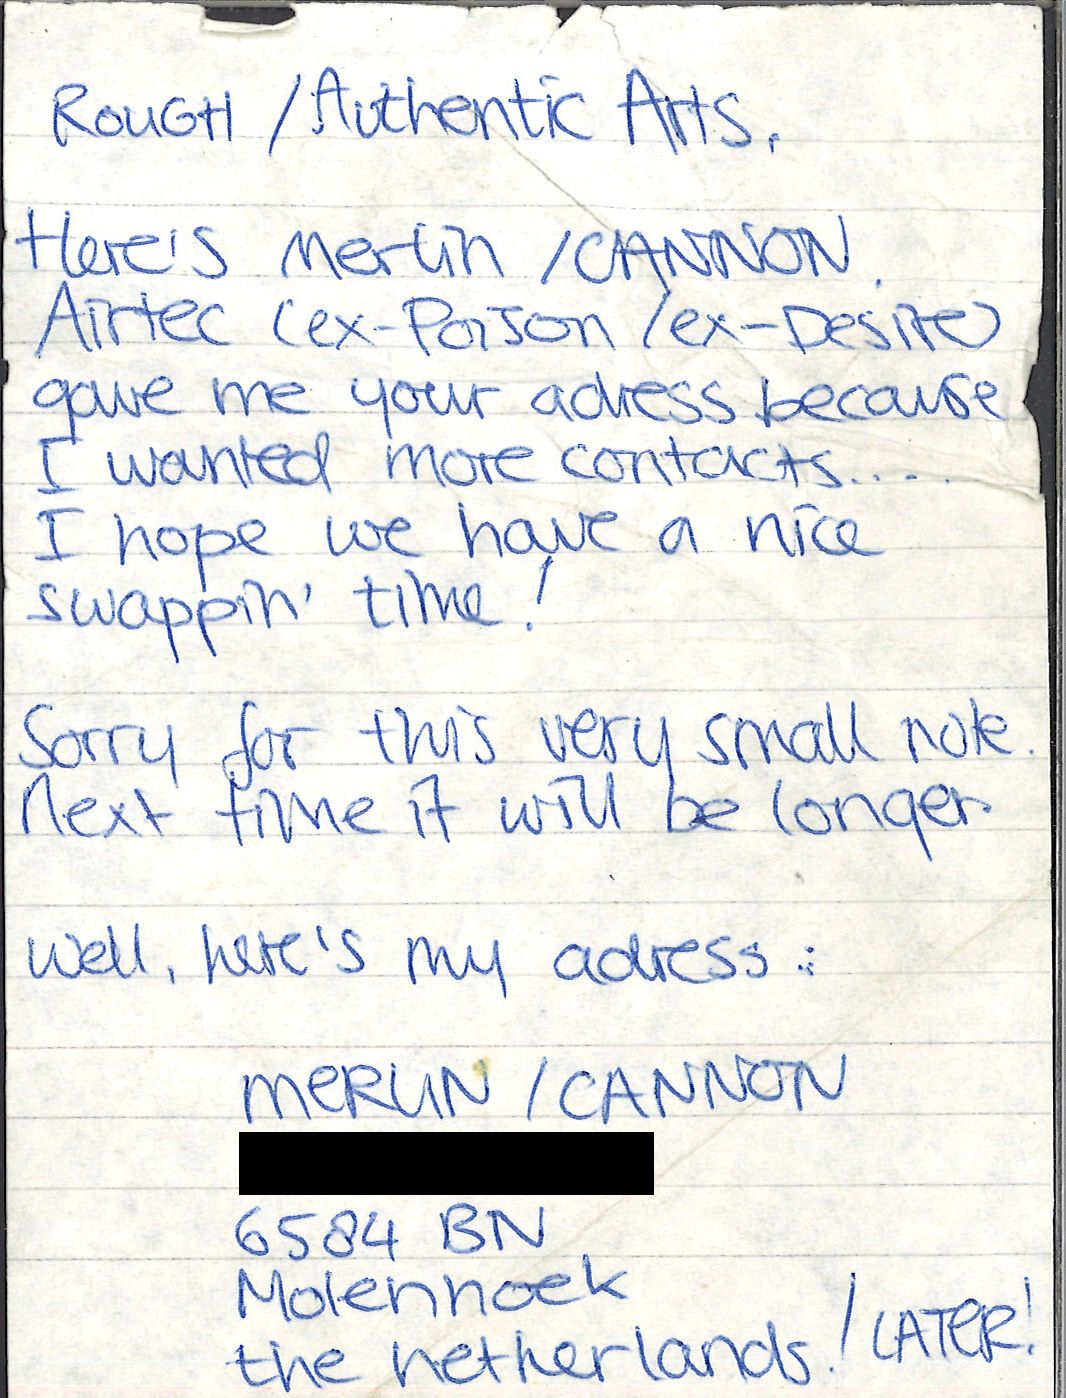 ROUGH / Authentic Arts.
Here's Merlin / CANNON.
Airtec (ex-Poison / ex-Desire)
gave me your adress because
I wanted more contacts....
I hope we have a nice
swappin' time!
Sorry for this very small note.
Next time it will be longer.
Well, here's my adress :
MERLIN / CANNON
6584 BN
Molenhoek
the netherlands! / LATER!